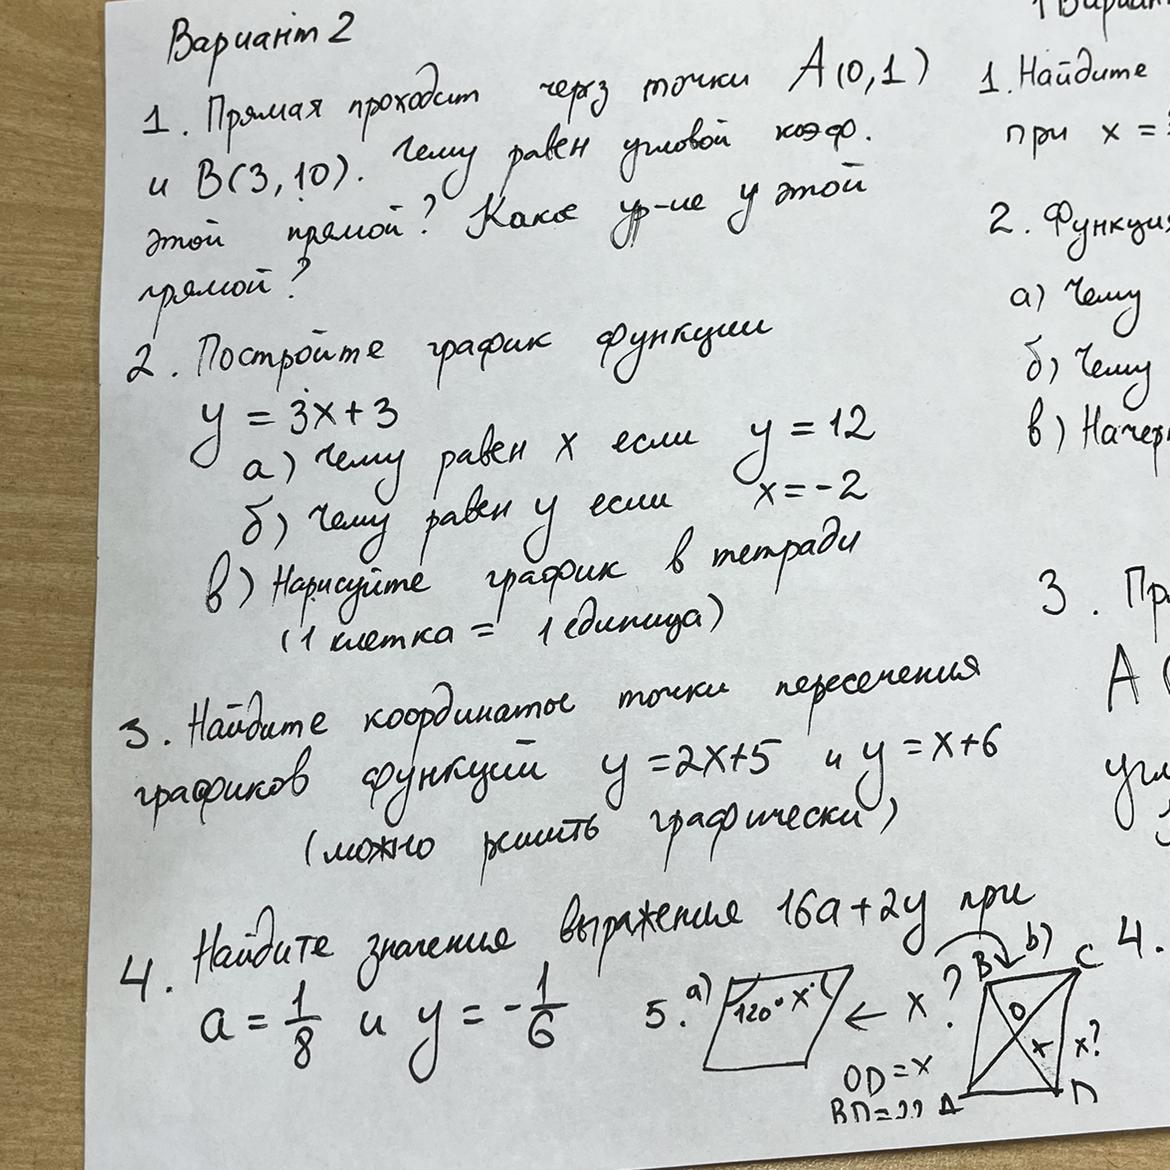 Вариант 2
1. Прямая проходит через точки A(0,1)
и B(3,10). Чему равен угловой коэф.
этой прямой? Какое ур-ие у этой
прямой?
2. Постройте график функции
y = 3x+3
а) Чему равен x если y = 12
б) Чему равен y если x = -2
в) Нарисуйте график в тетради
(1 клетка = 1 единица)
3. Найдите координаты точки пересечения
графиков функций y = 2x+5 и y = x+6
(можно решить графически)
4. Найдите значения выражения 16a+2y при
a = 1/8 и y = -1/6
5. а) 120° x° ← x?
b) B C O x x? A D
OD = x
BD = ??
1 Вариан
1. Найдите
при x =
2. Функция
а) Чему
б) Чему
в) Начер
3. Пр
A (
угл
4.